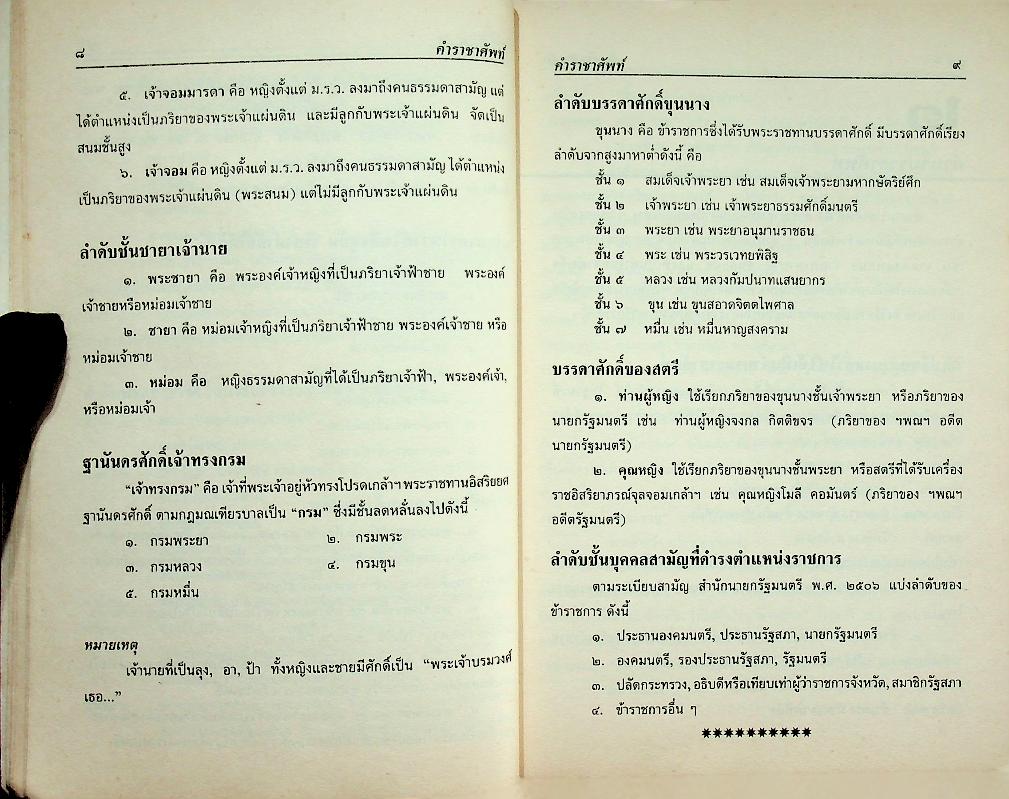 ๘ คำราชาศัพท์
๕. เจ้าจอมมารดา คือ หญิงตั้งแต่ ม.ร.ว. ลงมาถึงคนธรรมดาสามัญ แต่
ได้ตำแหน่งเป็นภริยาของพระเจ้าแผ่นดิน และมีลูกกับพระเจ้าแผ่นดิน จัดเป็น
สนมชั้นสูง
๖. เจ้าจอม คือ หญิงตั้งแต่ ม.ร.ว. ลงมาถึงคนธรรมดาสามัญ ได้ตำแหน่ง
เป็นภริยาของพระเจ้าแผ่นดิน (พระสนม) แต่ไม่มีลูกกับพระเจ้าแผ่นดิน
ลำดับชั้นชายาเจ้านาย
๑. พระชายา คือ พระองค์เจ้าหญิงที่เป็นภริยาเจ้าฟ้าชาย พระองค์
เจ้าชายหรือหม่อมเจ้าชาย
๒. ชายา คือ หม่อมเจ้าหญิงที่เป็นภริยาเจ้าฟ้าชาย พระองค์เจ้าชาย หรือ
หม่อมเจ้าชาย
๓. หม่อม คือ หญิงธรรมดาสามัญที่ได้เป็นภริยาเจ้าฟ้า, พระองค์เจ้า,
หรือหม่อมเจ้า
ฐานันดรศักดิ์เจ้าทรงกรม
“เจ้าทรงกรม” คือ เจ้าที่พระเจ้าอยู่หัวทรงโปรดเกล้าฯ พระราชทานอิสริยยศ
ฐานันดรศักดิ์ ตามกฎมณเฑียรบาลเป็น “กรม” ซึ่งมีชั้นลดหลั่นลงไปดังนี้
๑. กรมพระยา ๒. กรมพระ
๓. กรมหลวง ๔. กรมขุน
๕. กรมหมื่น
หมายเหตุ
เจ้านายที่เป็นลุง, อา, ป้า ทั้งหญิงและชายมีศักดิ์เป็น “พระเจ้าบรมวงศ์
เธอ...”
คำราชาศัพท์ ๙
ลำดับบรรดาศักดิ์ขุนนาง
ขุนนาง คือ ข้าราชการซึ่งได้รับพระราชทานบรรดาศักดิ์ มีบรรดาศักดิ์เรียง
ลำดับจากสูงมาหาต่ำดังนี้ คือ
ชั้น ๑ สมเด็จเจ้าพระยา เช่น สมเด็จเจ้าพระยามหากษัตริย์ศึก
ชั้น ๒ เจ้าพระยา เช่น เจ้าพระยาธรรมศักดิ์มนตรี
ชั้น ๓ พระยา เช่น พระยาอนุมานราชธน
ชั้น ๔ พระ เช่น พระวรเวทยพิสิฐ
ชั้น ๕ หลวง เช่น หลวงกัมปนาทแสนยากร
ชั้น ๖ ขุน เช่น ขุนสอาดจิตตไพศาล
ชั้น ๗ หมื่น เช่น หมื่นหาญสงคราม
บรรดาศักดิ์ของสตรี
๑. ท่านผู้หญิง ใช้เรียกภริยาของขุนนางชั้นเจ้าพระยา หรือภริยาของ
นายกรัฐมนตรี เช่น ท่านผู้หญิงจงกล กิตติขจร (ภริยาของ ฯพณฯ อดีต
นายกรัฐมนตรี)
๒. คุณหญิง ใช้เรียกภริยาของขุนนางชั้นพระยา หรือสตรีที่ได้รับเครื่อง
ราชอิสริยาภรณ์จุลจอมเกล้าฯ เช่น คุณหญิงโมลี คอมันตร์ (ภริยาของ ฯพณฯ
อดีตรัฐมนตรี)
ลำดับชั้นบุคคลสามัญที่ดำรงตำแหน่งราชการ
ตามระเบียบสามัญ สำนักนายกรัฐมนตรี พ.ศ. ๒๕๐๖ แบ่งลำดับของ
ข้าราชการ ดังนี้
๑. ประธานองคมนตรี, ประธานรัฐสภา, นายกรัฐมนตรี
๒. องคมนตรี, รองประธานรัฐสภา, รัฐมนตรี
๓. ปลัดกระทรวง, อธิบดีหรือเทียบเท่าผู้ว่าราชการจังหวัด, สมาชิกรัฐสภา
๔. ข้าราชการอื่น ๆ
**********